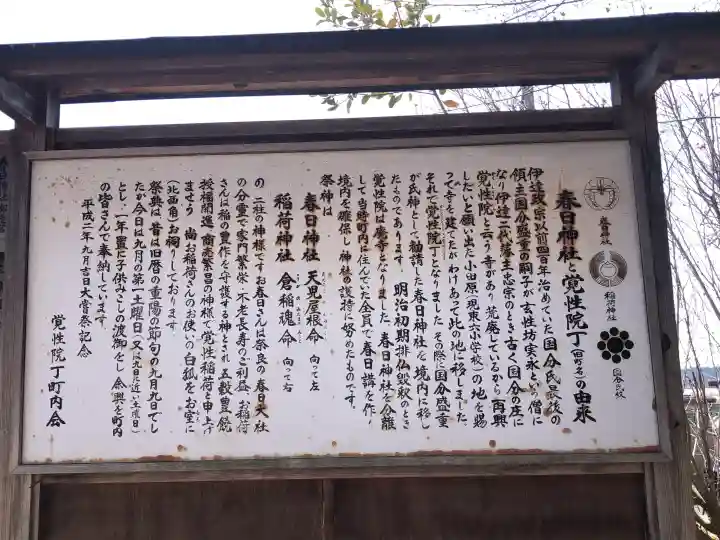 春日神社と覚性院丁(旧町名)の由来
春日神社
稲荷神社
国分氏紋
伊達政宗以前四百年治めていた国分氏最後の
領主国分盛重の嗣子が玄性坊実永という僧に
なり伊達二代藩主忠宗のとき古く国分の庄に
覚性院と云う寺があり荒廃しているから再興
したいと願い出た小田原(現東六小学校)の地を賜
って寺を建てたがわけあって此の地に移しました
それで覚性院丁となりました その際に国分盛重
が氏神として勧請した春日神社を境内に移し
たものであります 明治初期排仏毀釈のとき
覚性院は廃寺となりました、春日神社を分離
して当時町内に住んでた全員で春日講を作り
境内を確保し神社の護持に努めたものです。
祭神は
春日神社 天児屋根命 向って左
稲荷神社 倉稲魂命 向って右
の二社の神様ですお春日さんは奈良の春日大社
の分霊で家門繁栄・不老長寿のご利益、お稲荷
さんは稲の豊作を守護する神とされ五穀豊饒
授福開運 商売繁昌の神様で覚性稲荷と申上げ
ませう 尚お稲荷さんのお使いの白狐をお室に
(北西角)お祠りしております。
祭典は昔は旧暦の重陽の節句の九月九日でし
たが今日は九月の第一土曜日(又は九日に近い土曜日)
とし、一年置に子供みこしの渡御をし余興を町内
の皆さんで奉納しています。
平成二年九月吉日大嘗祭記念
覚性院丁町内会